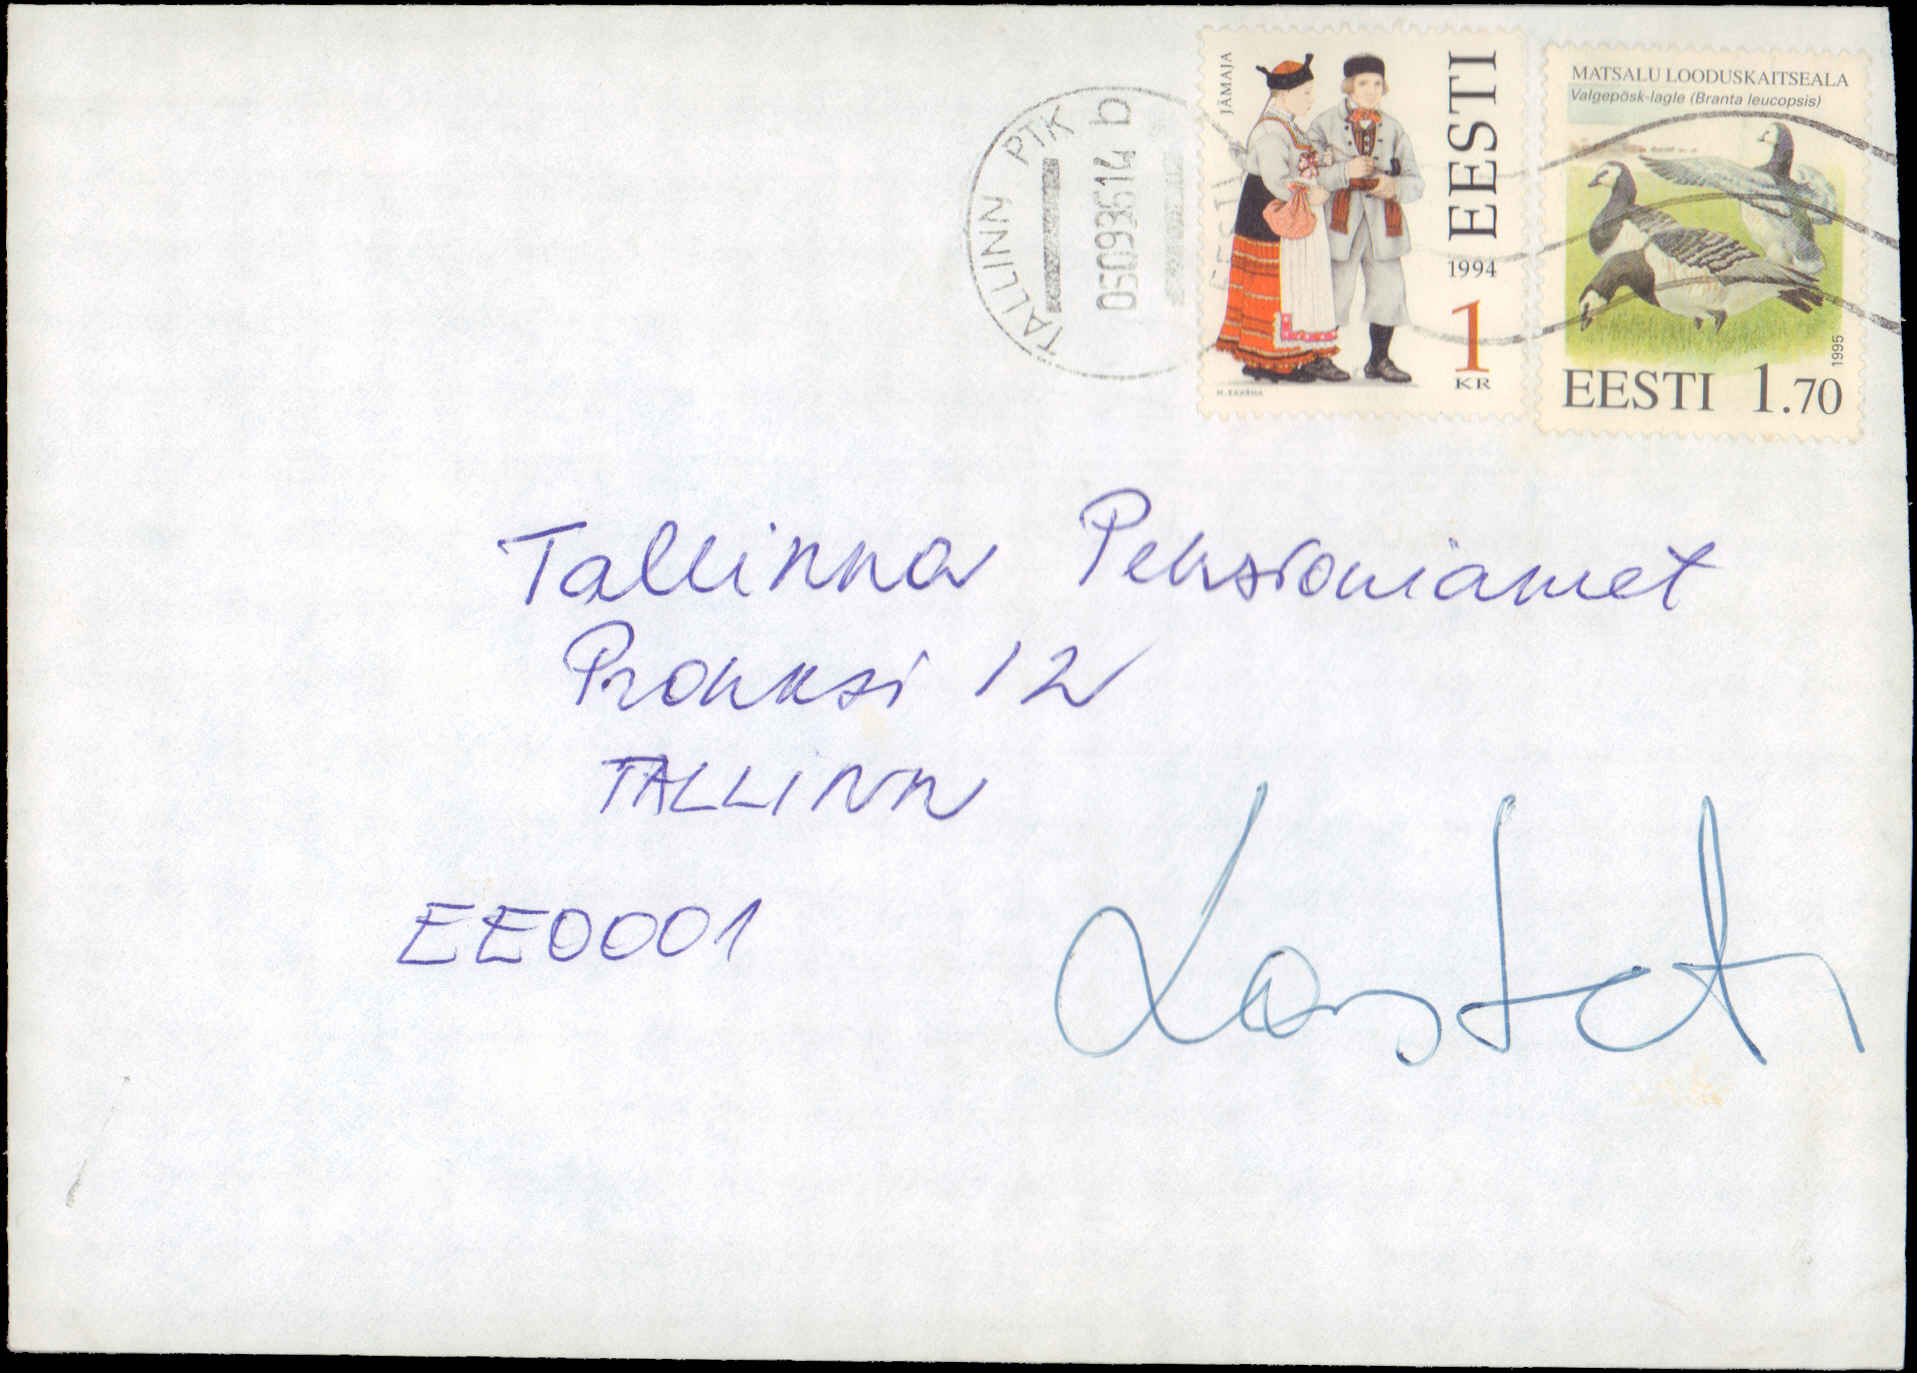 TALLINN PTK
05099614 b
JÄMAJA
EESTI
1994
1
KR
MATSALU LOODUSKAITSEALA
Valgepõsk-lagle (Branta leucopsis)
1995
EESTI 1.70
Tallinna Pensioniamet
Pronksi 12
TALLINN
EE0001